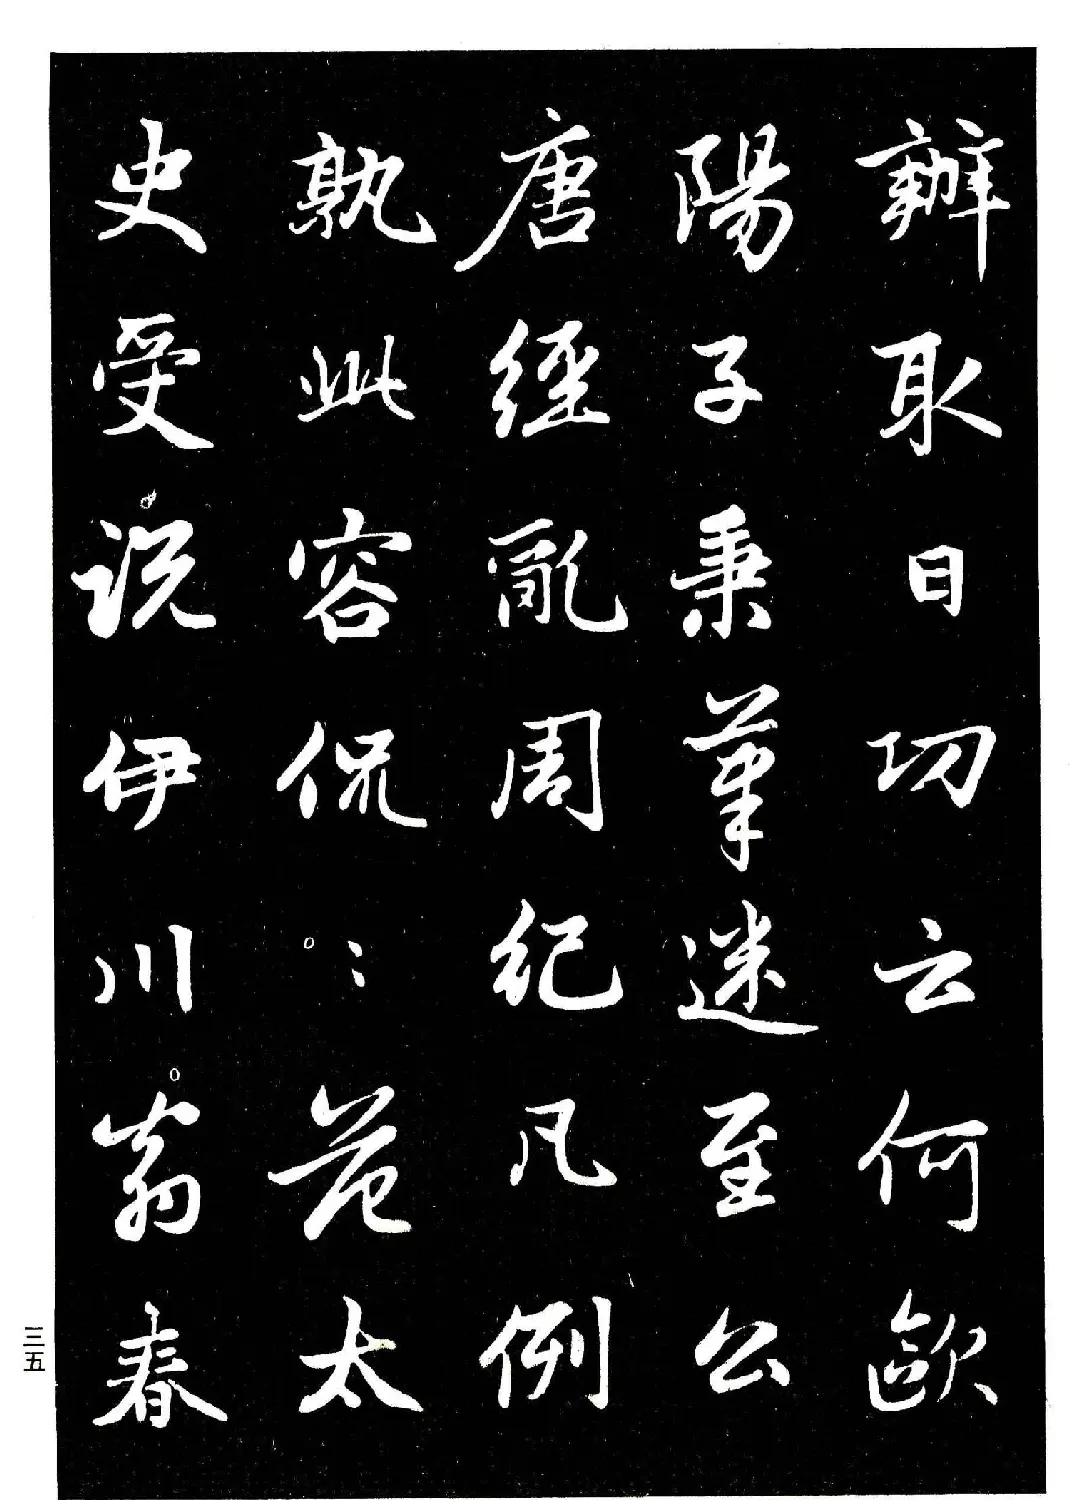 辦取日功云何歐
陽子秉筆迷至公
唐經亂周紀凡例
孰此容侃〻范太
史受説伊川翁春
三五